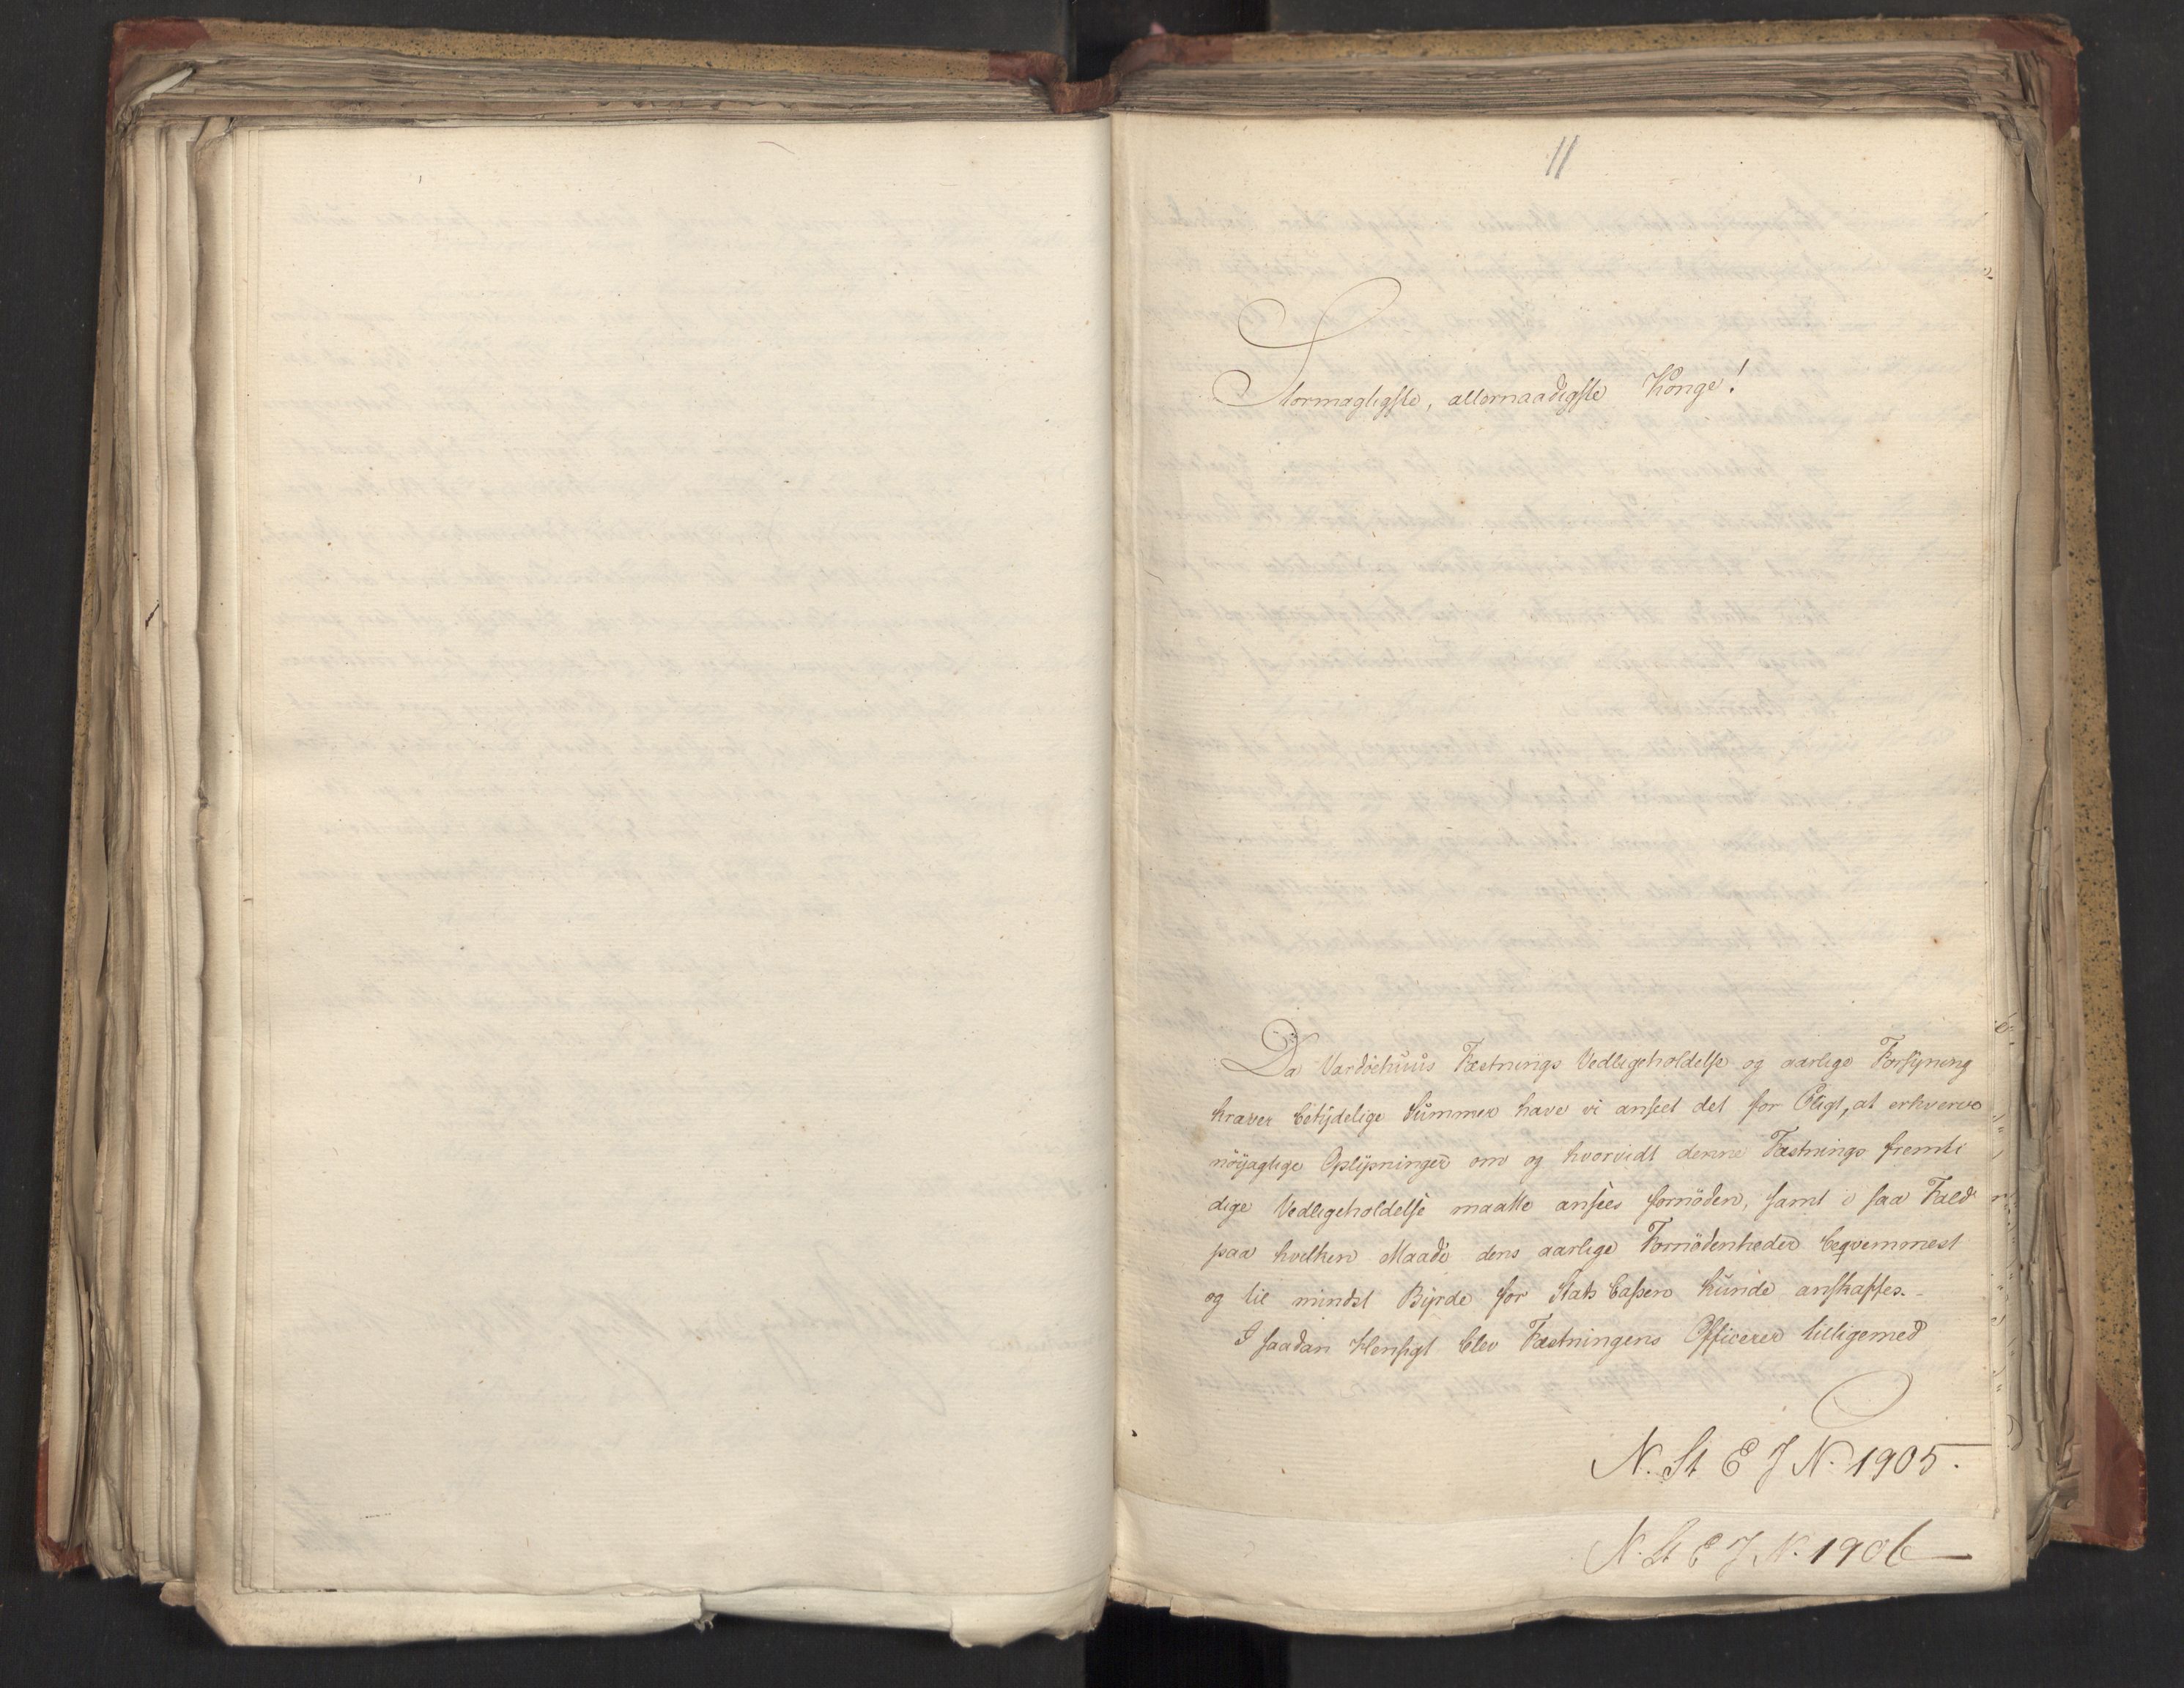 11
Stormagtigste, allernaadigste Konge!
Da Vardöehuus Fæstnings Vedligeholdelse og aarlige Forsyning
kræver betydelige Summer have vi anseet det for Pligt, at erhverve
nöyagtige Oplysninger om og hvorvidt denne Fæstnings fremti
dige Vedligeholdelse maatte ansees fornöden, samt i saa Fald
paa hvilken Maade dens aarlige Fornödenheder beqvemmest
og til mindst Byrde for Stats Cassen kunde anskaffes.-
I saadan Hensigt blev Fæstningens Officerer tilligemed
N. St E J N. 1905.
N. St E J N. 1906